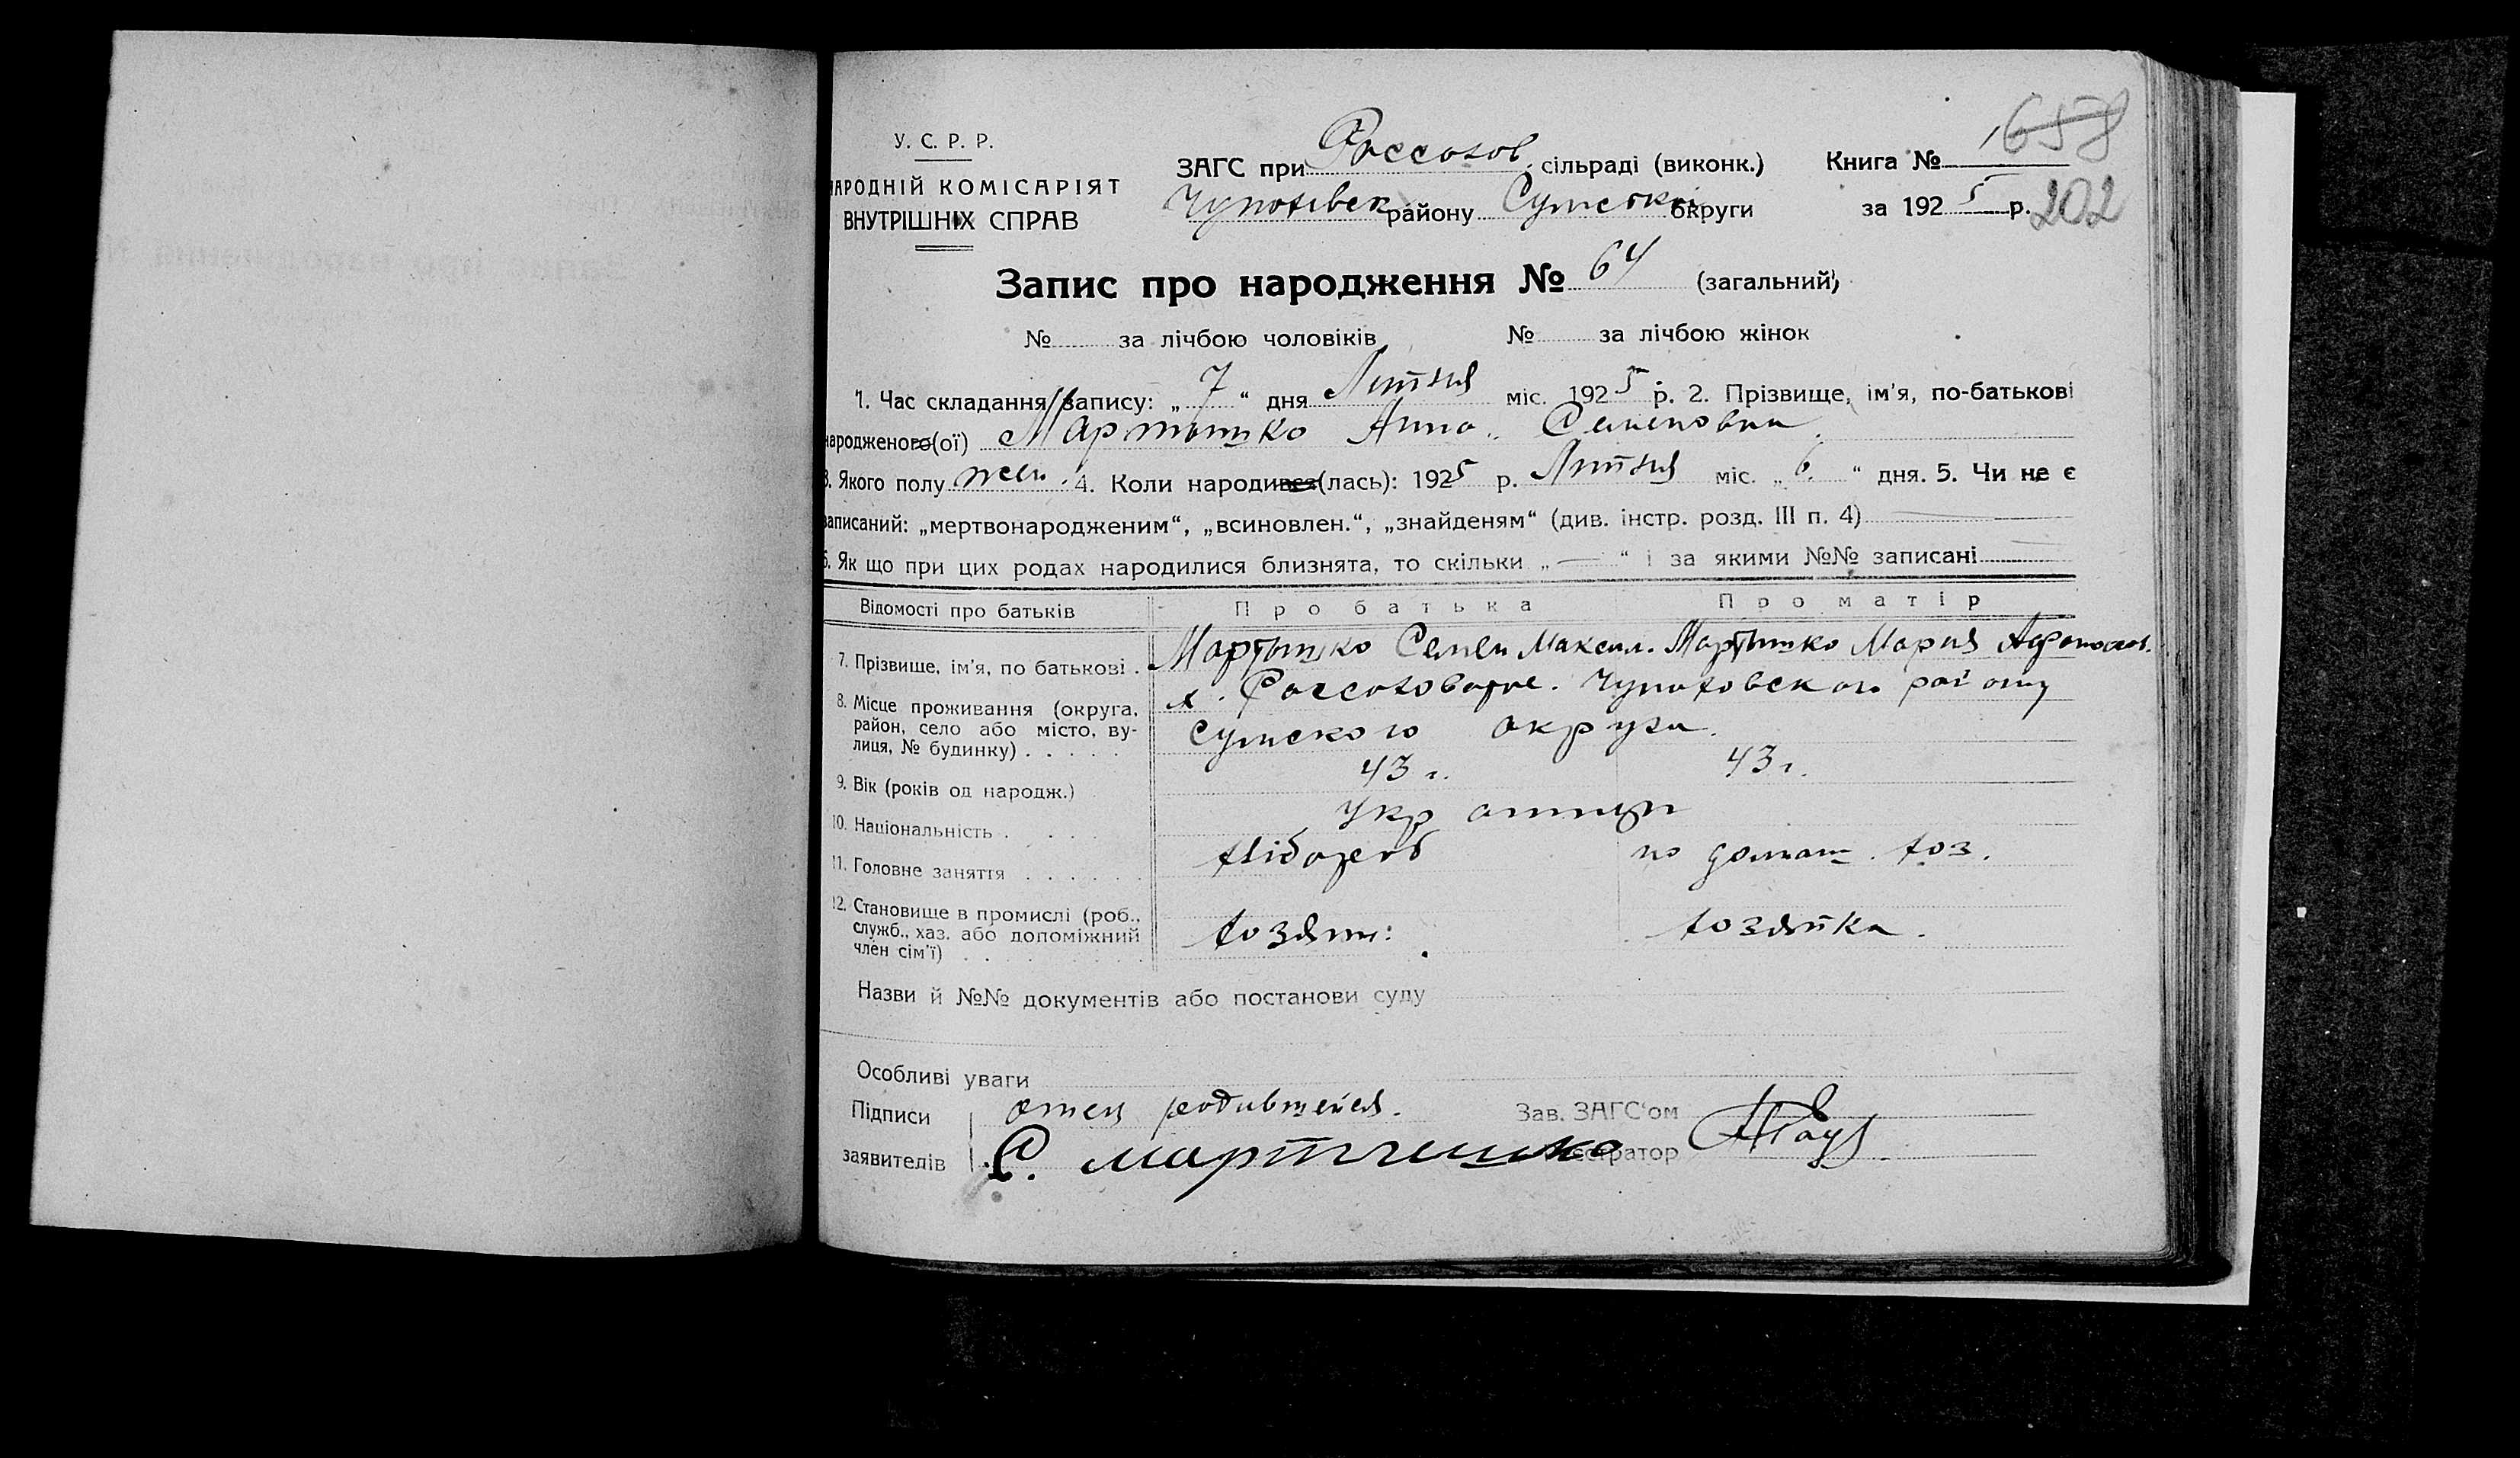 У. С. Р. Р.
НАРОДНІЙ КОМІСАРІЯТ
ВНУТРІШНІХ СПРАВ
ЗАГС при Россохов. сільраді (виконк.)
Чупахівск району Сумской округи
Книга № 658
за 1925 р. 202
Запис про народження № 64 (загальний)
№ за лічбою чоловіків № за лічбою жінок
1. Час складання запису: „ 7 “ дня Липня міс. 1925 р. 2. Прізвище, ім'я, по-батькові
народженого(ої) Мартышко Анна Семеновна.
3. Якого полу жен. 4. Коли народився(лась): 1925 р. Липня міс. „ 6. “ дня. 5. Чи не є
записаний: „мертвонародженим“, „всиновлен.“, „знайденям“ (див. інстр. розд. III п. 4)
6. Як що при цих родах народилися близнята, то скільки „ — “ і за якими №№ записані
Відомості про батьків Про батька Про матір
7. Прізвище, ім'я, по батькові . Мартышко Семен Максим. Мартышко Мария
8. Місце проживання (округа, район, село або місто, вулиця, № будинку) . . . . . х. Чупаховского району
Сумского округа.
9. Вік (років од народж.) 43 г. 43 г.
10. Національність . . . . украинци
11. Головне заняття . . . . . . хлібороб по домаш. хоз.
12. Становище в промислі (роб., служб., хаз. або допоміжний член сім'ї) . . . . . . . . . хозяин: хозяйка.
Назви й №№ документів або постанови суду
Особливі уваги
Підписи отец родившейся. Зав. ЗАГС'ом
заявителів С. мартишко Реєстратор